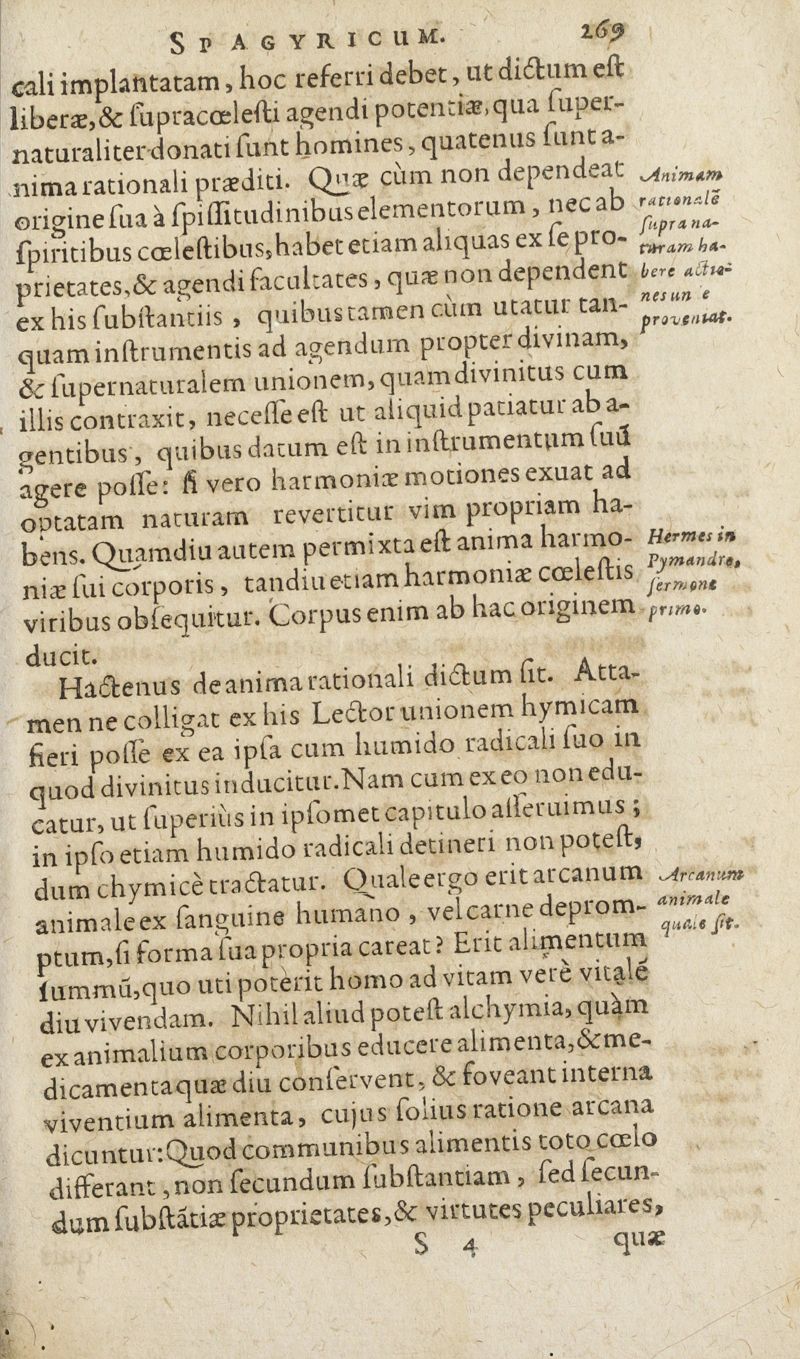 SPAGYRICUM. 269
cali implantatam, hoc referri debet, ut dictum eſt
liberæ, & ſupracœleſti agendi potentiæ, qua ſuper-
naturaliter donati ſunt homines, quatenus ſunt a-
nima rationali præditi. Quæ cùm non dependeat
origine ſua à ſpiſſitudinibus elementorum, nec ab
ſpiritibus cœleſtibus, habet etiam aliquas ex ſe pro-
prietates, & agendi facultates, quæ non dependent
ex his ſubſtantiis, quibus tamen cùm utatur tan-
quam inſtrumentis ad agendum propter divinam,
& ſupernaturalem unionem, quam divinitus cum
illis contraxit, neceſſe eſt ut aliquid patiatur ab a-
gentibus, quibus datum eſt in inſtrumentum ſuũ
agere poſſe: ſi vero harmoniæ motiones exuat ad
optatam naturam revertitur vim propriam ha-
bens. Quamdiu autem permixta eſt anima harmo-
niæ ſui corporis, tandiu etiam harmoniæ cœleſtis
viribus obſequitur. Corpus enim ab hac originem
ducit.
Animam
rationalē
ſupra na-
turam ha-
bere
proveniat.
Hermes in
Pymandro,
ſermone
primo.
Hactenus de anima rationali dictum ſit. Atta-
men ne colligat ex his Lector unionem hymicam
fieri poſſe ex ea ipſa cum humido radicali ſuo in
quod divinitus inducitur. Nam cum ex eo non edu-
catur, ut ſuperiùs in ipſomet capitulo aſſeruimus;
in ipſo etiam humido radicali detineri non poteſt,
dum chymicè tractatur. Quale ergo erit arcanum
animale ex ſanguine humano, vel carne deprom-
ptum, ſi forma ſua propria careat? Erit alimentum
ſummũ, quo uti poterit homo ad vitam vere vitalē
diu vivendam. Nihil aliud poteſt alchymia, quàm
ex animalium corporibus educere alimenta, & me-
dicamenta quæ diu conſervent, & foveant interna
viventium alimenta, cujus ſolius ratione arcana
dicuntur: Quod communibus alimentis toto cœlo
differant, non ſecundum ſubſtantiam, ſed ſecun-
dum ſubſtãtiæ proprietates, & virtutes peculiares,
Arcanum
animale
quale ſit.
S 4 quæ